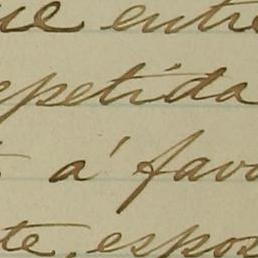 ue entre
epetida
á favo
te, espos